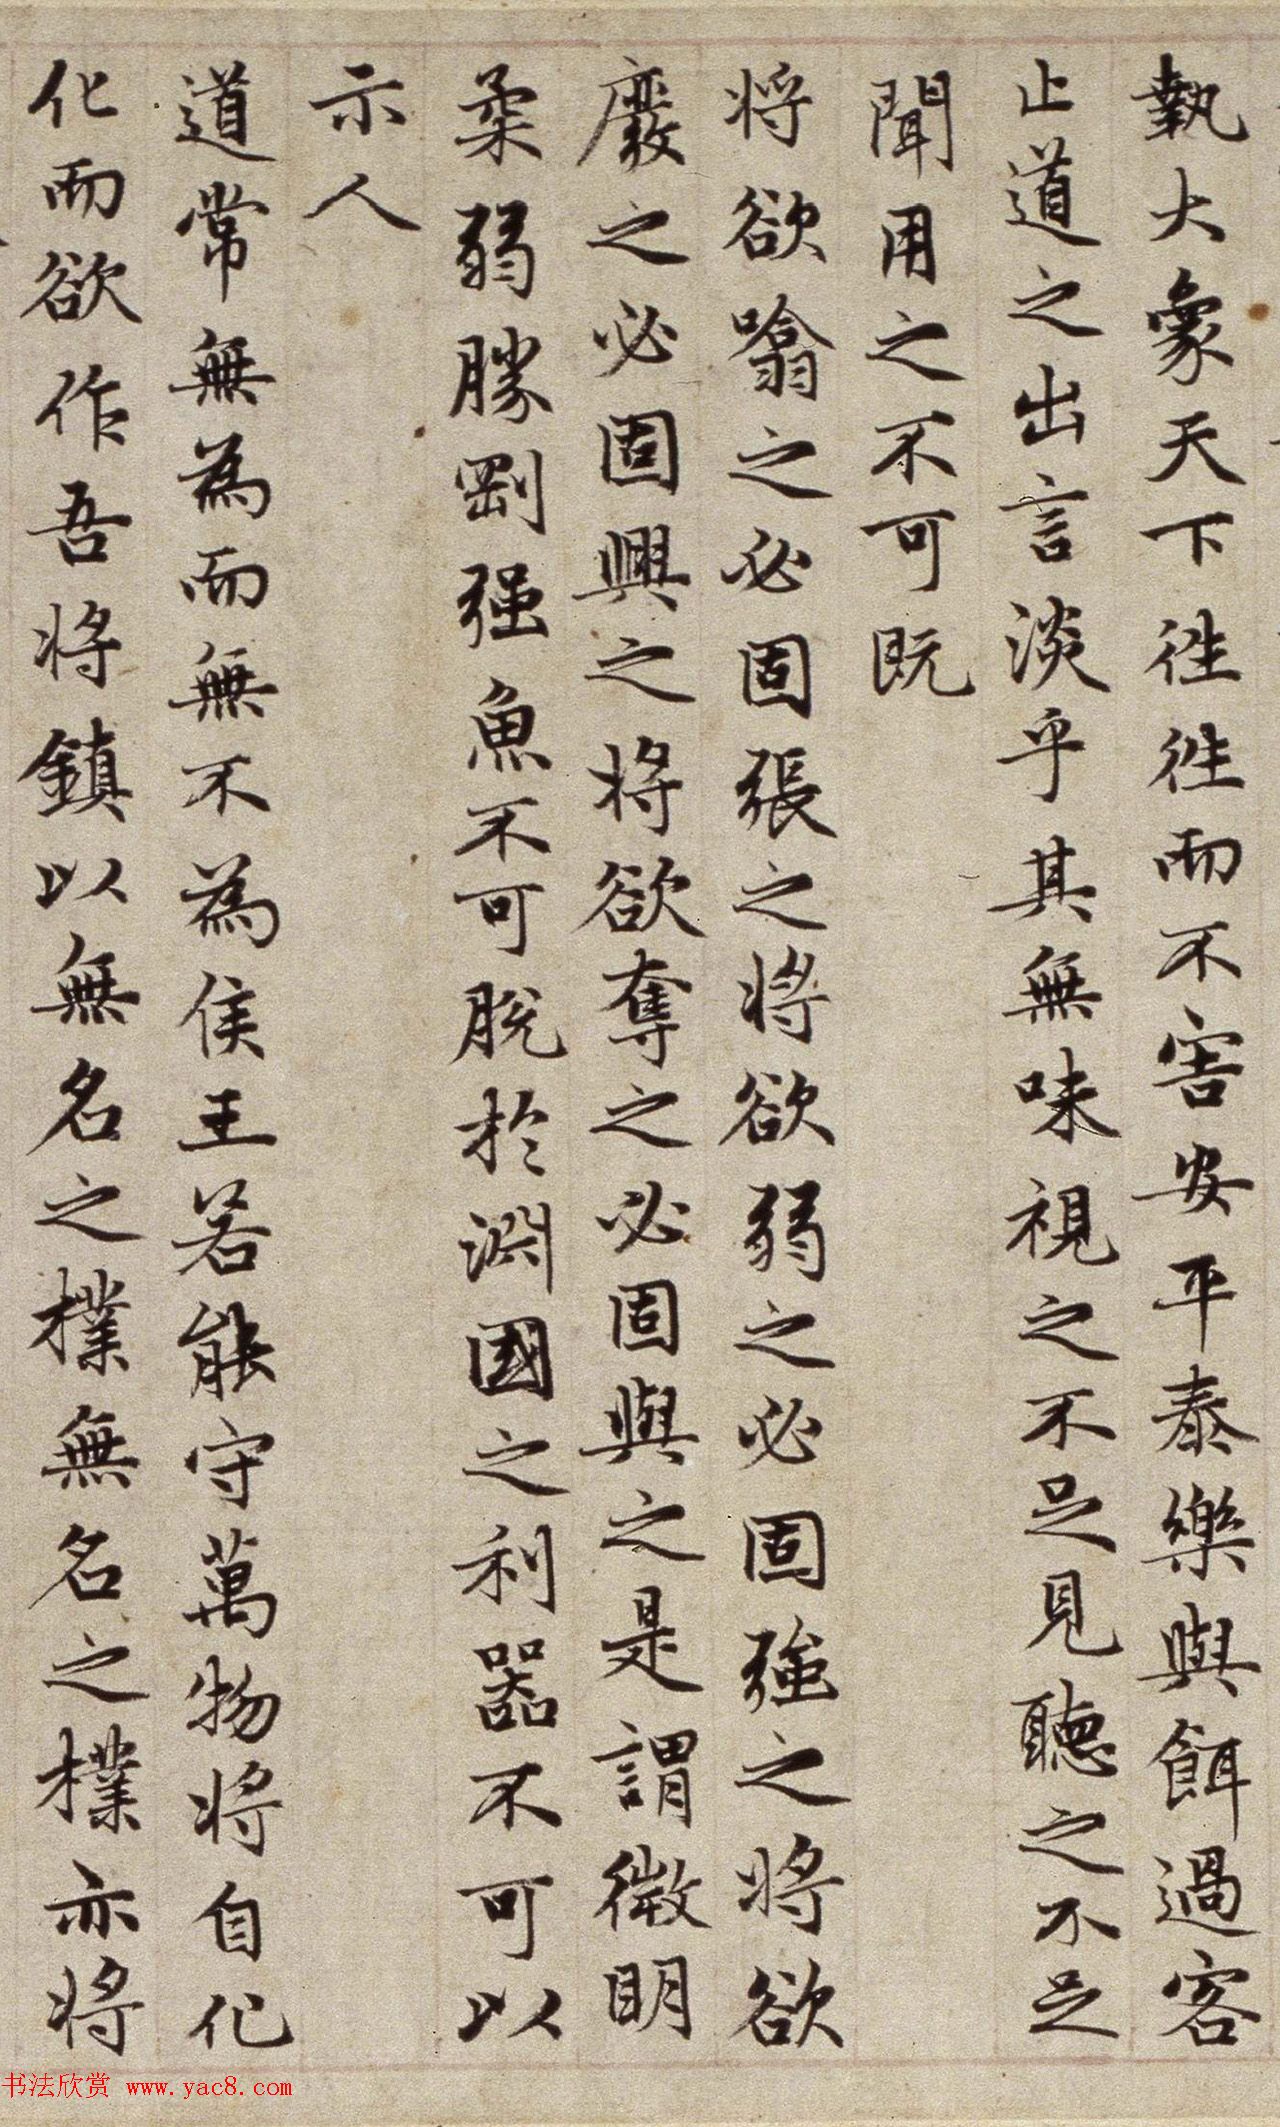 執大象天下往往而不害安平泰樂與餌過客
止道之出言淡乎其無味視之不足見聽之不足
聞用之不可既
將欲噏之必固張之將欲弱之必固強之將欲
廢之必固興之將欲奪之必固與之是謂微明
柔弱勝剛强魚不可脫於淵國之利器不可以
示人
道常無為而無不為侯王若能守萬物將自化
化而欲作吾將鎮以無名之樸無名之樸亦將
书法欣赏 www.yac8.com